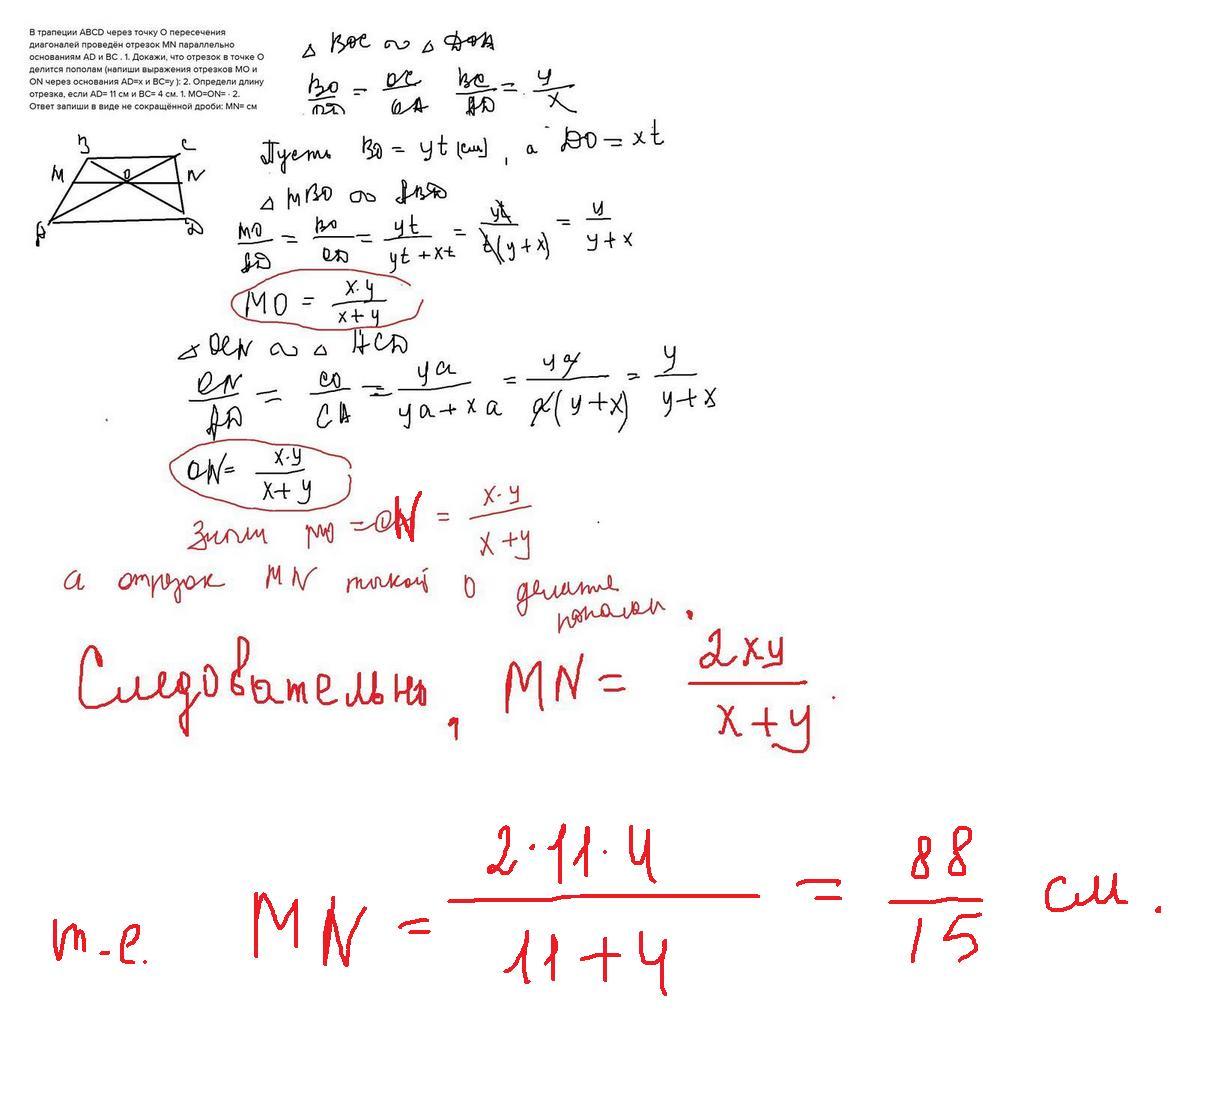 В трапеции ABCD через точку О пересечения
диагоналей проведён отрезок MN параллельно
основаниям AD и BC . 1. Докажи, что отрезок в точке О
делится пополам (напиши выражения отрезков MO и
ON через основания AD=x и BC=y ): 2. Определи длину
отрезка, если AD= 11 см и BC= 4 см. 1. MO=ON= · 2.
Ответ запиши в виде не сокращённой дроби: MN= см
△ BOC ∾ △ DOA
BO/OD = OC/OA BC/AD = y/x
B C
M O N
A D
Пусть BO = yt [см], а DO = xt
△ MBO ∾ ABD
MO/AD = BO/BD = yt/(yt+xt) = yt/(t(y+x)) = y/(y+x)
MO = x·y/(x+y)
△ OCN ∾ △ ACD
ON/AD = CO/CA = ya/(ya+xa) = ya/(a(y+x)) = y/(y+x)
ON = x·y/(x+y)
MO = ON = x·y/(x+y)
а отрезок MN точкой O делится
пополам.
Следовательно, MN = 2xy/(x+y).
т.е. MN = 2·11·4/(11+4) = 88/15 см.